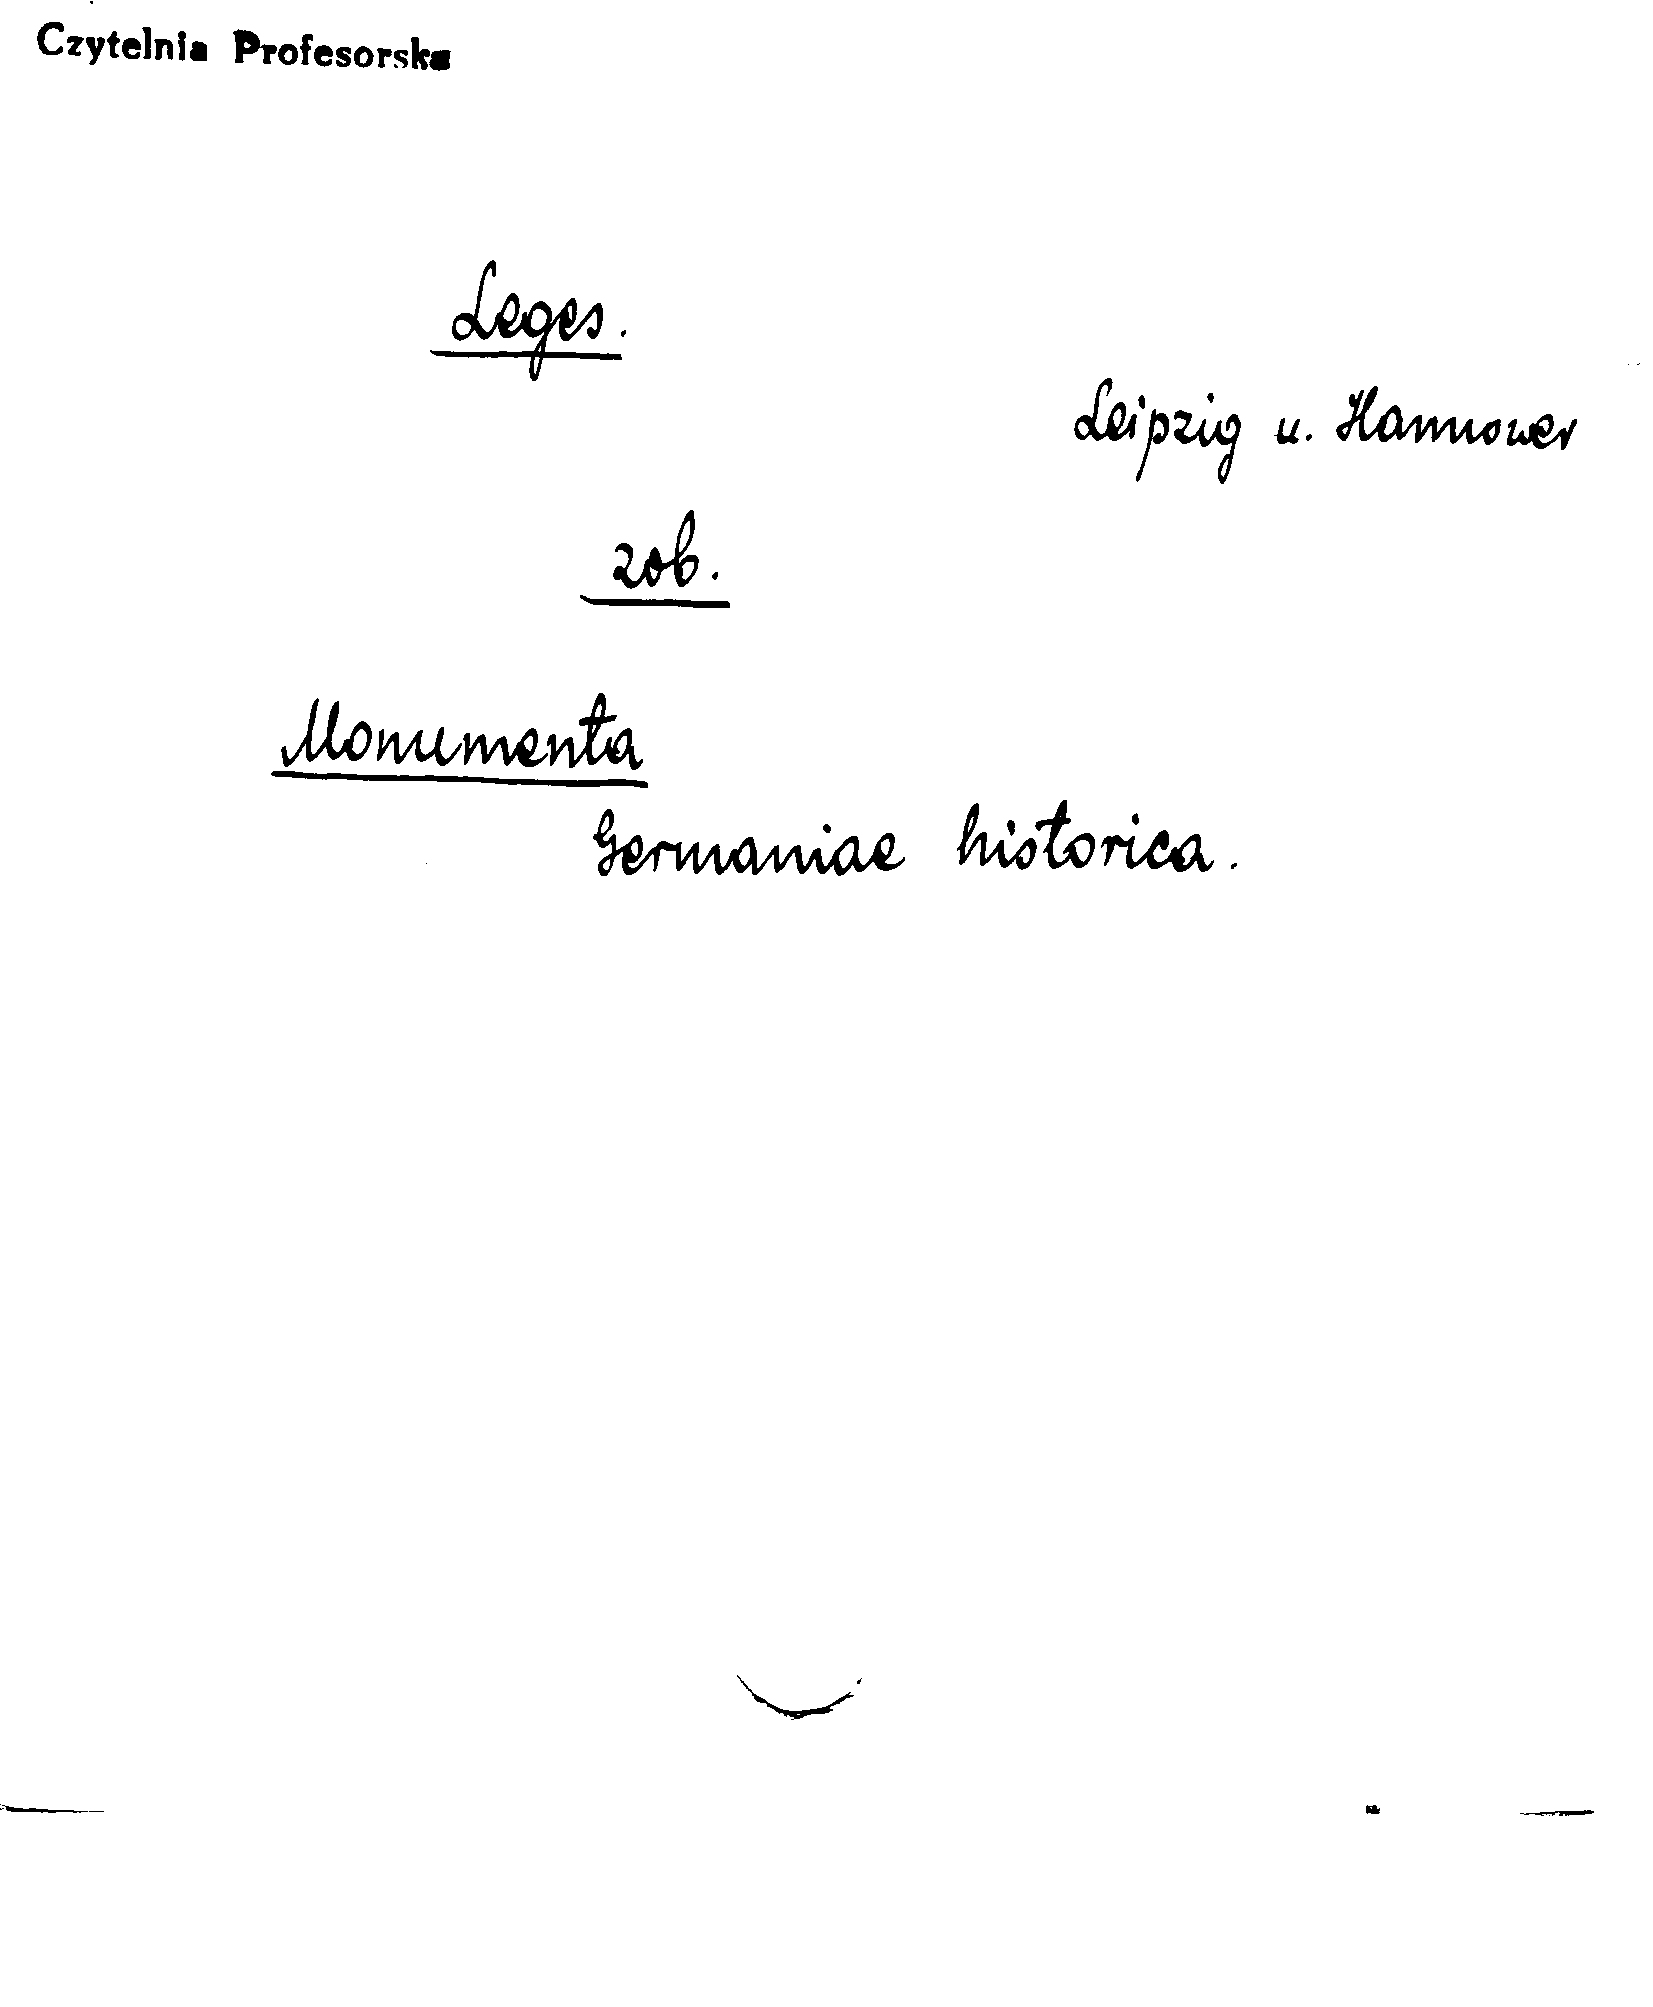 Czytelnia Profesorska
Leges.
Leipzig u. Hannower
zob.
Monumenta
Germaniae historica.